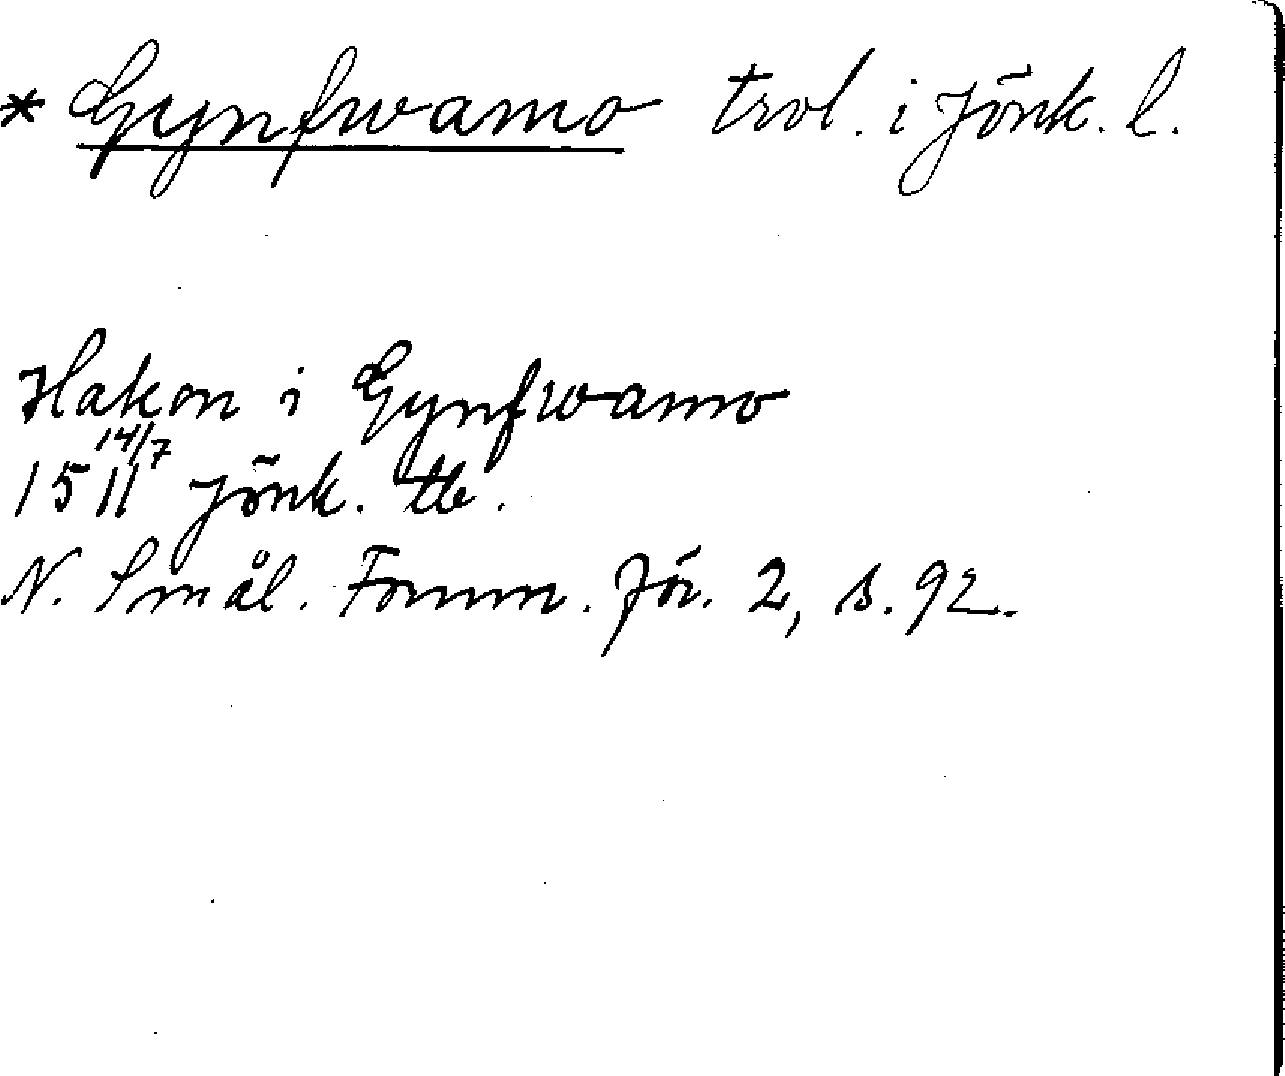 * Gynfwamo trol. i Jönk. l.
Hakon i Gynfwamo
15 14/7 11 Jönk. tb.
N. Smål. Fornm. För. 2, s. 92.